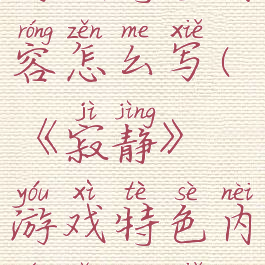 róng zěn me xiě
容怎么写(
jì jìng
《寂静》
yóu xì tè sè nèi
游戏特色内